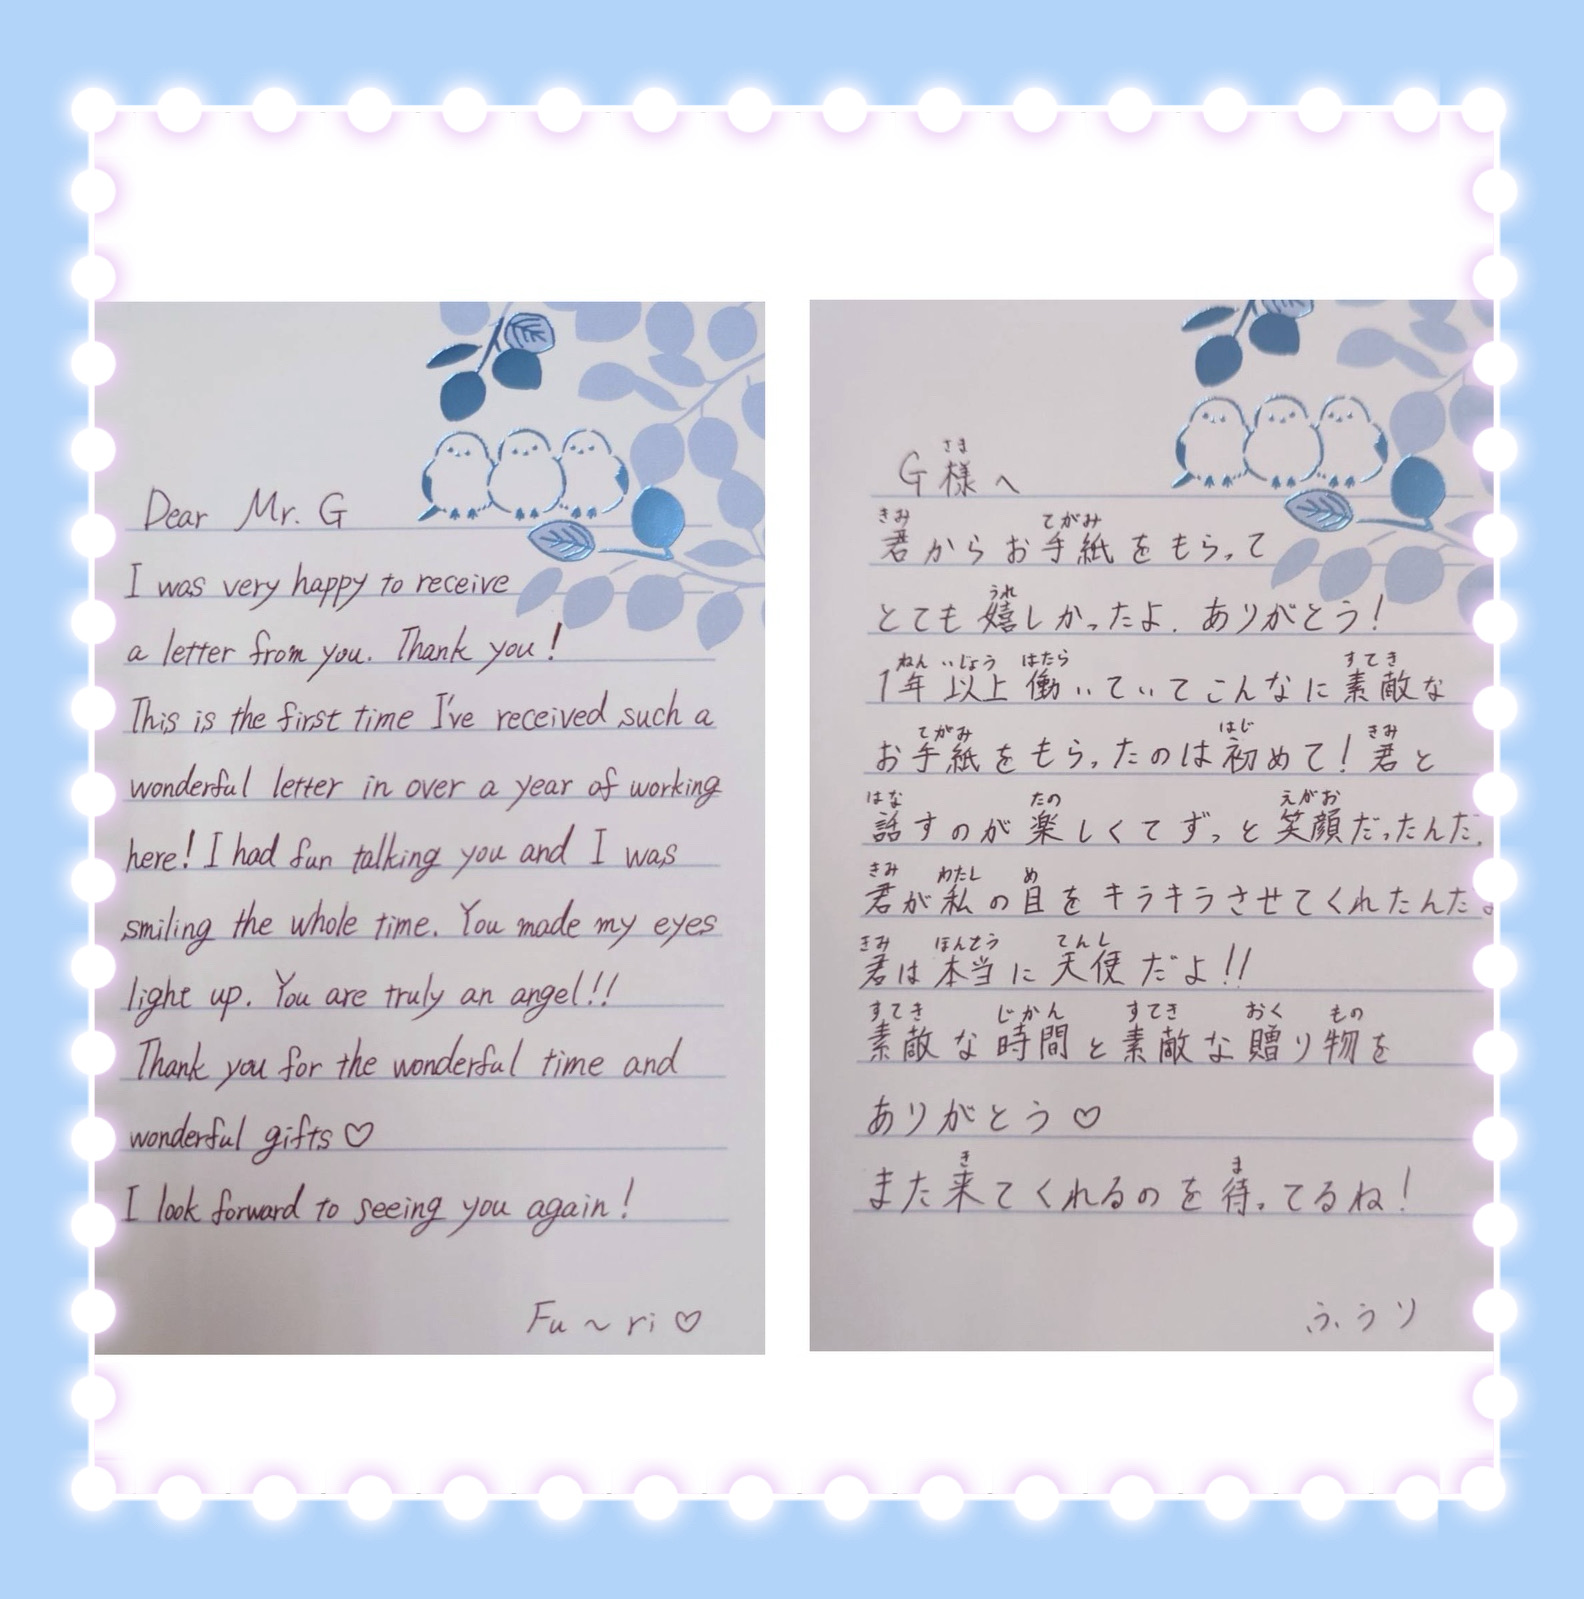 Dear Mr. G
I was very happy to receive
a letter from you. Thank you!
This is the first time I've received such a
wonderful letter in over a year of working
here! I had fun talking you and I was
smiling the whole time. You made my eyes
light up. You are truly an angel!!
Thank you for the wonderful time and
wonderful gifts♡
I look forward to seeing you again!
Fu~ri♡
さま
G様へ
きみ てがみ
君からお手紙をもらって
うれ
とても嬉しかったよ。ありがとう!
ねん いじょう はたら すてき
1年以上働いていてこんなに素敵な
てがみ はじ きみ
お手紙をもらったのは初めて!君と
はな たの えがお
話すのが楽しくてずっと笑顔だったんだ。
きみ わたし め
君が私の目をキラキラさせてくれたんだよ
きみ ほんとう てんし
君は本当に天使だよ!!
すてき じかん すてき おく もの
素敵な時間と素敵な贈り物を
ありがとう♡
き ま
また来てくれるのを待ってるね!
ふうり